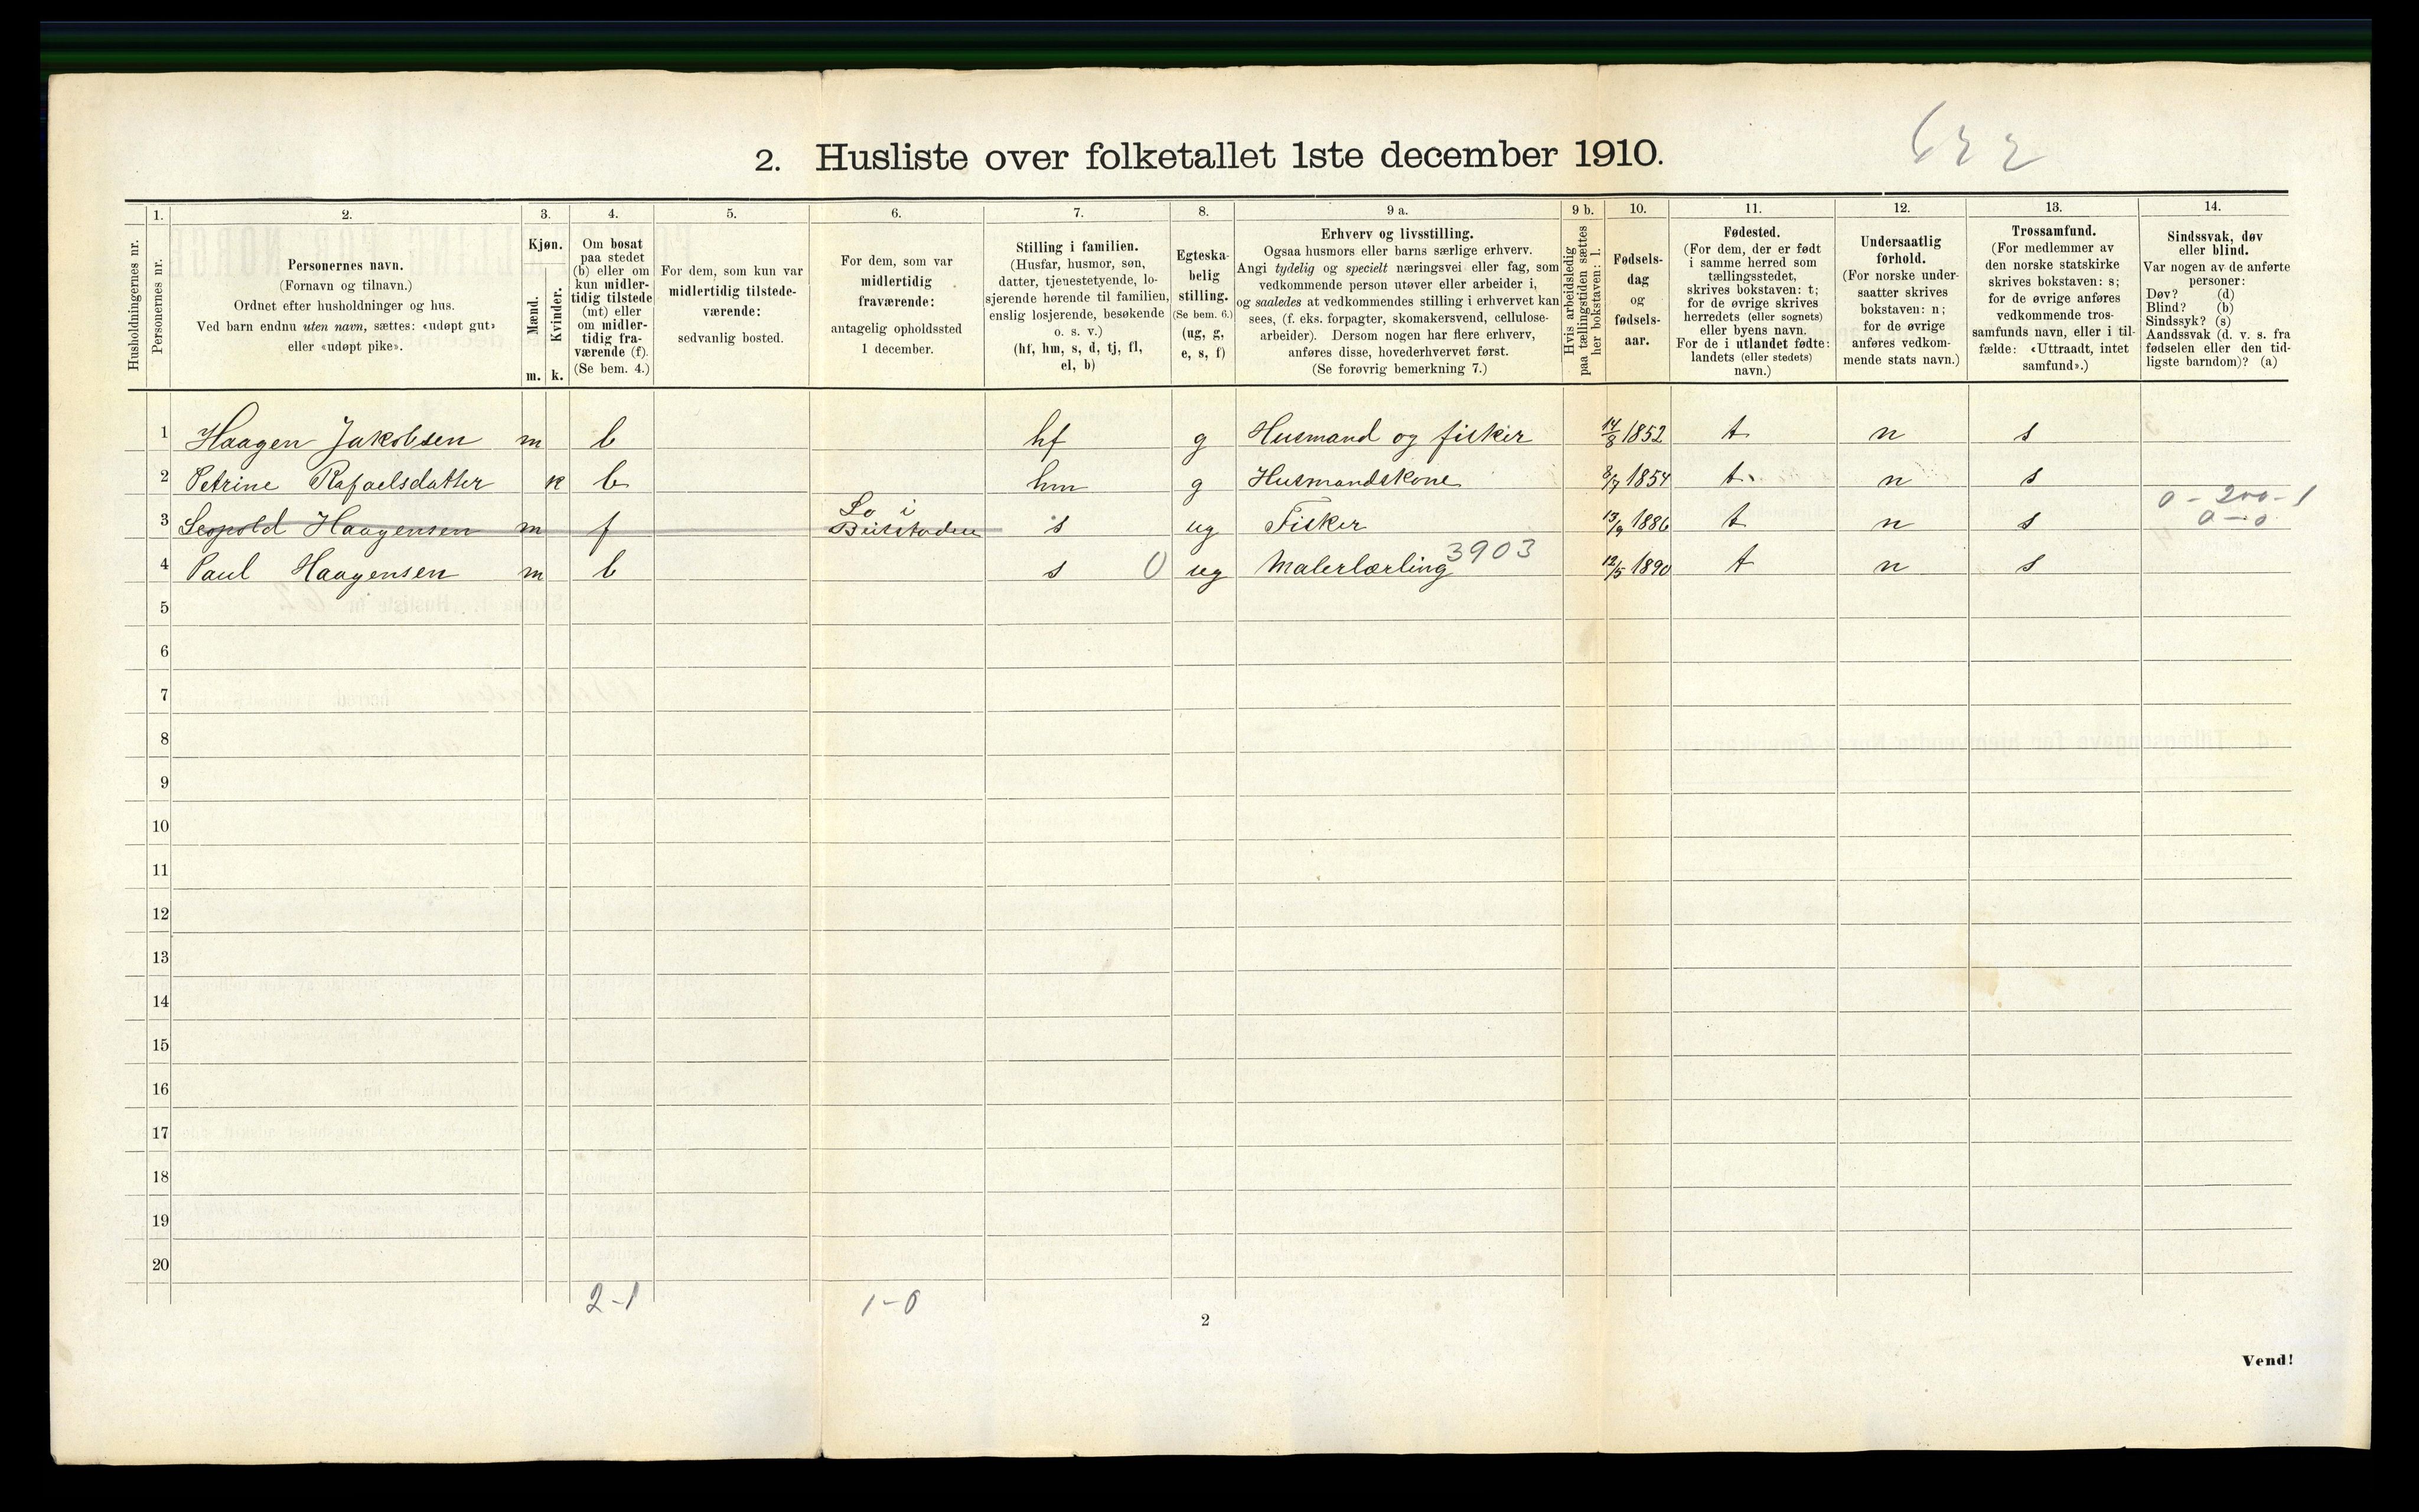 622
2. Husliste over folketallet 1ste december 1910.
Husholdningernes nr.
1.
Personernes nr.
2.
Personernes navn.
(Fornavn og tilnavn.)
Ordnet efter husholdninger og hus.
Ved barn endnu uten navn, sættes: «udøpt gut»
eller «udøpt pike».
3.
Kjøn.
Mænd.
Kvinder.
m. k.
4.
Om bosat
paa stedet
(b) eller om
kun midler-
tidig tilstede
(mt) eller
om midler-
tidig fra-
værende (f).
(Se bem. 4.)
5.
For dem, som kun var
midlertidig tilstede-
værende:
sedvanlig bosted.
6.
For dem, som var
midlertidig
fraværende:
antagelig opholdssted
1 december.
7.
Stilling i familien.
(Husfar, husmor, søn,
datter, tjenestetyende, lo-
sjerende hørende til familien,
enslig losjerende, besøkende
o. s. v.)
(hf, hm, s, d, tj, fl,
el, b)
8.
Egteska-
belig
stilling.
(Se bem. 6.)
(ug, g,
e, s, f)
9 a.
Erhverv og livsstilling.
Ogsaa husmors eller barns særlige erhverv.
Angi tydelig og specielt næringsvei eller fag, som
vedkommende person utøver eller arbeider i,
og saaledes at vedkommendes stilling i erhvervet kan
sees, (f. eks. forpagter, skomakersvend, cellulose-
arbeider). Dersom nogen har flere erhverv,
anføres disse, hovederhvervet først.
(Se forøvrig bemerkning 7.)
9 b.
Hvis arbeidsledig
paa tællingstiden sættes
her bokstaven: l.
10.
Fødsels-
dag
og
fødsels-
aar.
11.
Fødested.
(For dem, der er født
i samme herred som
tællingsstedet,
skrives bokstaven: t;
for de øvrige skrives
herredets (eller sognets)
eller byens navn.
For de i utlandet fødte:
landets (eller stedets)
navn.)
12.
Undersaatlig
forhold.
(For norske under-
saatter skrives
bokstaven: n;
for de øvrige
anføres vedkom-
mende stats navn.)
13.
Trossamfund.
(For medlemmer av
den norske statskirke
skrives bokstaven: s;
for de øvrige anføres
vedkommende tros-
samfunds navn, eller i til-
fælde: «Uttraadt, intet
samfund».)
14.
Sindssvak, døv
eller blind.
Var nogen av de anførte
personer:
Døv? (d)
Blind? (b)
Sindssyk? (s)
Aandssvak (d. v. s. fra
fødselen eller den tid-
ligste barndom)? (a)
1 Haagen Jakobsen m b hf g Husmand og fisker 14/8 1852 t n s
2 Petrine Rafaelsdatter k b hm g Husmandskone 8/7 1854 t n s
0-200-1
3 Leopold Haagensen m f Lo i Beitstaden s ug Fisker 13/9 1886 t n s 0-0
4 Paul Haagensen m b s 0 ug Malerlærling 3903 12/5 1890 t n s
5
6
7
8
9
10
11
12
13
14
15
16
17
18
19
20
2-1 1-0
2
Vend!